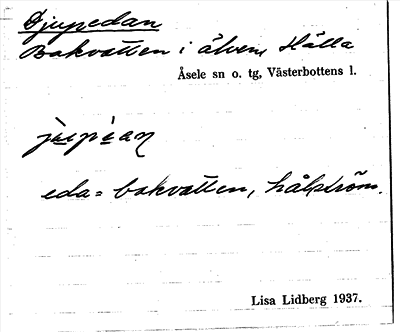 Djupedan
Bakvatten i älven, Hälla
Åsele sn o. tg, Västerbottens l.
eda = bakvatten, hålström.
Lisa Lidberg 1937.